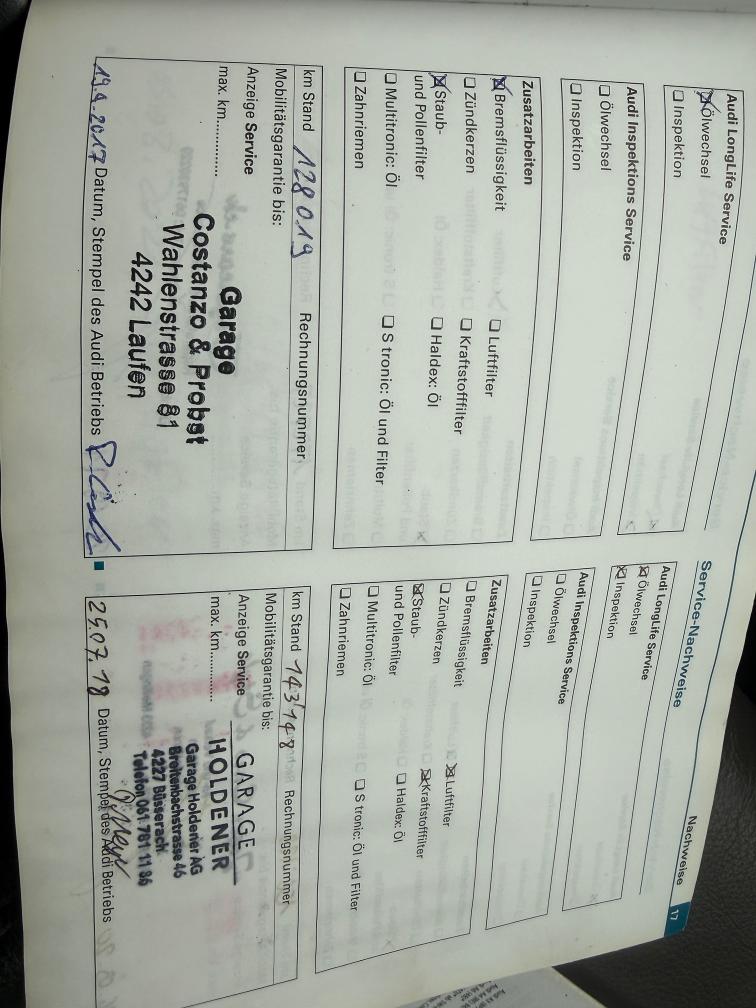 Nachweise 17
Service-Nachweise
Audi LongLife Service
☒ Ölwechsel
☐ Inspektion
Audi Inspektions Service
☐ Ölwechsel
☐ Inspektion
Zusatzarbeiten
☒ Bremsflüssigkeit ☐ Luftfilter
☐ Zündkerzen ☐ Kraftstofffilter
☒ Staub- ☐ Haldex: Öl
und Pollenfilter
☐ Multitronic: Öl ☐ S tronic: Öl und Filter
☐ Zahnriemen
km Stand 128019 Rechnungsnummer
Mobilitätsgarantie bis:
Anzeige Service
max. km..............
Garage
Costanzo & Probst
Wahlenstrasse 81
4242 Laufen
19.4.2017 Datum, Stempel des Audi Betriebs
Audi LongLife Service
☒ Ölwechsel
☒ Inspektion
Audi Inspektions Service
☐ Ölwechsel
☐ Inspektion
Zusatzarbeiten
☐ Bremsflüssigkeit ☒ Luftfilter
☐ Zündkerzen ☒ Kraftstofffilter
☒ Staub- ☐ Haldex: Öl
und Pollenfilter
☐ Multitronic: Öl ☐ S tronic: Öl und Filter
☐ Zahnriemen
km Stand 143'148 Rechnungsnummer
Mobilitätsgarantie bis:
Anzeige Service
max. km..............
GARAGE
HOLDENER
Garage Holdener AG
Breitenbachstrasse 46
4227 Büsserach
Telefon 061 781 11 86
25.07.18 Datum, Stempel des Audi Betriebs